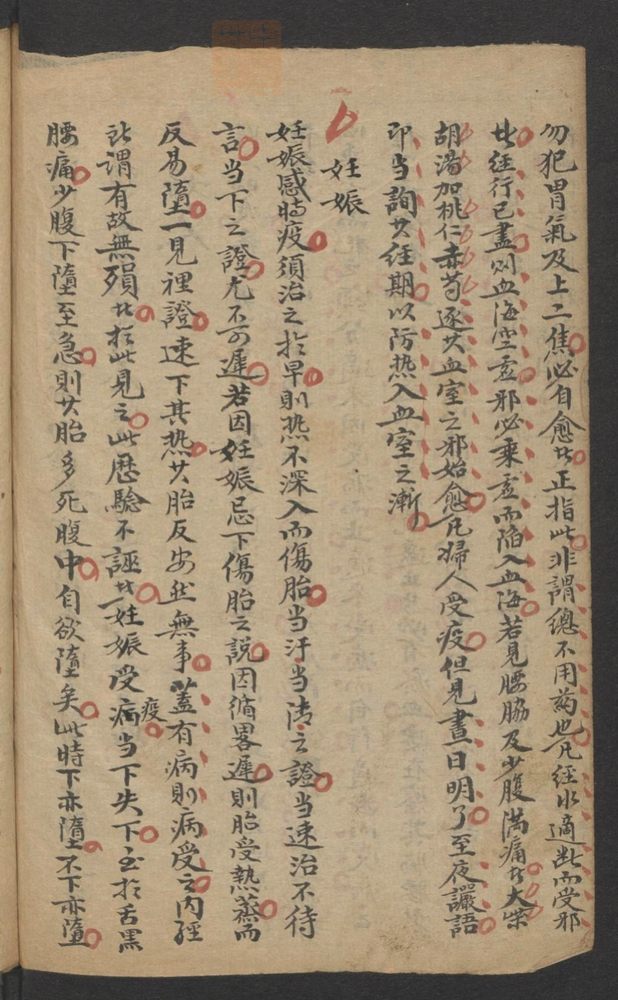 勿犯胃氣及上二焦必自愈者正指此非謂總不用药也凡经水適斷而受邪
者经行已盡則血海空虚邪必乘虚而陷入血海若見腰脇及少腹満痛者大柴
胡湯加桃仁赤芍逐其血室之邪始愈凡婦人受疫但見晝日明了至夜讝語
即当詢其经期以防热入血室之漸
妊娠
妊娠感時疫須治之扵早則热不深入而傷胎当汗当清之證当速治不待
言当下之證尤不可遲若因妊娠忌下傷胎之説因循畧遲則胎受熱蒸而
反易墮一見裡證速下其热其胎反安然無事蓋有病則病受之内經
所謂有故無殞者扵此見之此歷驗不誣者妊娠受疫病当下失下至扵舌黑
腰痛少腹下墮至急則其胎多死腹中自欲墮矣此時下亦墮不下亦墮